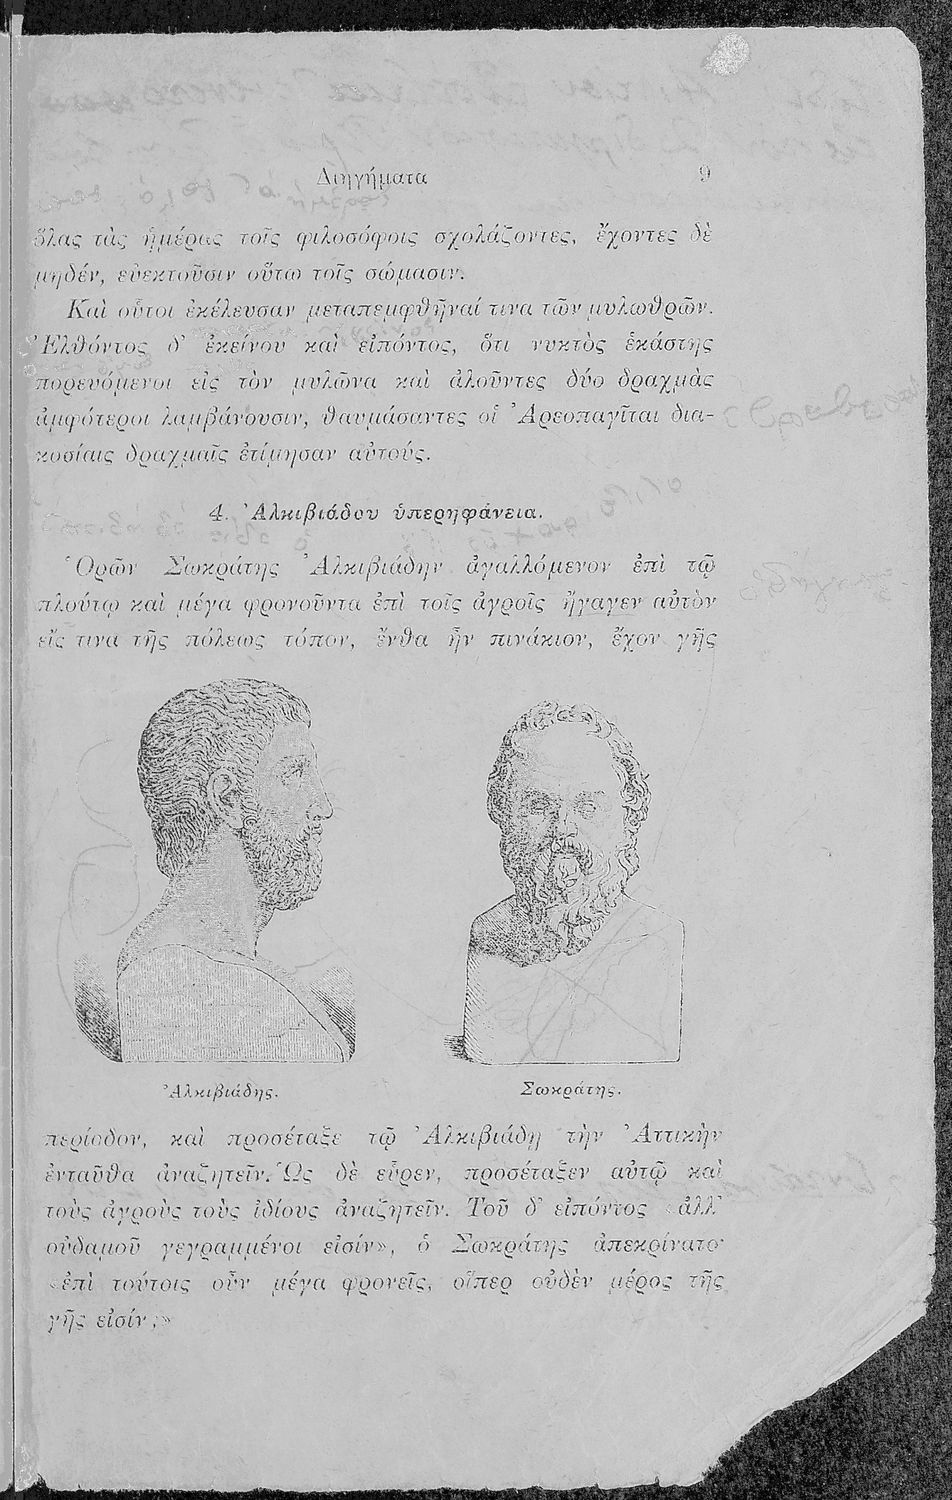 Διηγήματα 9
ὅλας τὰς ἡμέρας τοῖς φιλοσόφοις σχολάζοντες, ἔχοντες δὲ
μηδέν, εὐεκτοῦσιν οὕτω τοῖς σώμασιν.
Καὶ οὗτοι ἐκέλευσαν μεταπεμφθῆναί τινα τῶν μυλωθρῶν.
Ἐλθόντος δ' ἐκείνου καὶ εἰπόντος, ὅτι νυκτὸς ἑκάστης
πορευόμενοι εἰς τὸν μυλῶνα καὶ ἀλοῦντες δύο δραχμὰς
ἀμφότεροι λαμβάνουσιν, θαυμάσαντες οἱ Ἀρεοπαγῖται δια-
κοσίαις δραχμαῖς ἐτίμησαν αὐτούς.
4. Ἀλκιβιάδου ὑπερηφάνεια.
Ὁρῶν Σωκράτης Ἀλκιβιάδην ἀγαλλόμενον ἐπὶ τῷ
πλούτῳ καὶ μέγα φρονοῦντα ἐπὶ τοῖς ἀγροῖς ἤγαγεν αὐτὸν
εἴς τινα τῆς πόλεως τόπον, ἔνθα ἦν πινάκιον, ἔχον γῆς
Ἀλκιβιάδης. Σωκράτης.
περίοδον, καὶ προσέταξε τῷ Ἀλκιβιάδῃ τὴν Ἀττικὴν
ἐνταῦθα ἀναζητεῖν. Ὡς δὲ εὗρεν, προσέταξεν αὐτῷ καὶ
τοὺς ἀγροὺς τοὺς ἰδίους ἀναζητεῖν. Τοῦ δ' εἰπόντος «ἀλλ'
οὐδαμοῦ γεγραμμένοι εἰσίν», ὁ Σωκράτης ἀπεκρίνατο·
«ἐπὶ τούτοις οὖν μέγα φρονεῖς, οἵπερ οὐδὲν μέρος τῆς
γῆς εἰσίν;»